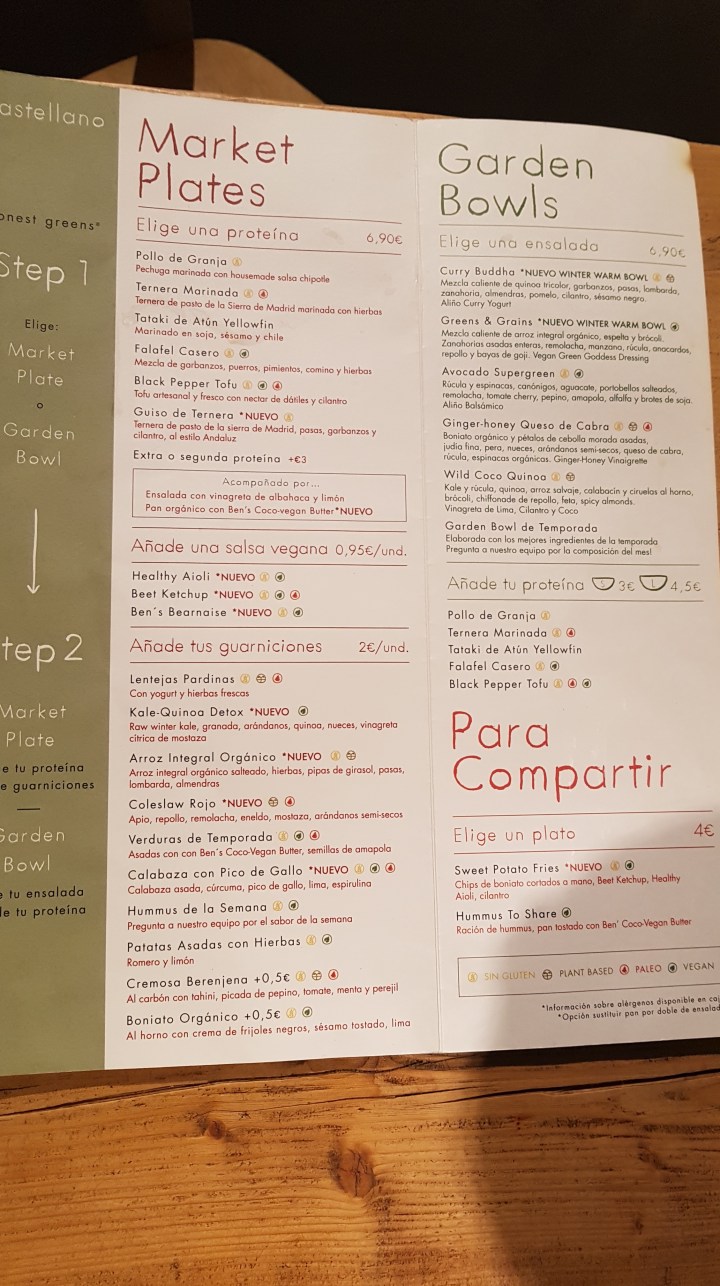 astellano
onest greens*
Step 1
Elige:
Market
Plate
o
Garden
Bowl
tep 2
Market
Plate
e tu proteína
e guarniciones
Garden
Bowl
e tu ensalada
de tu proteína
Market
Plates
Elige una proteína 6,90€
Pollo de Granja
Pechuga marinada con housemade salsa chipotle
Ternera Marinada
Ternera de pasto de la Sierra de Madrid marinada con hierbas
Tataki de Atún Yellowfin
Marinado en soja, sésamo y chile
Falafel Casero
Mezcla de garbanzos, puerros, pimientos, comino y hierbas
Black Pepper Tofu
Tofu artesanal y fresco con nectar de dátiles y cilantro
Guiso de Ternera *NUEVO
Ternera de pasto de la sierra de Madrid, pasas, garbanzos y
cilantro, al estilo Andaluz
Extra o segunda proteína +€3
Acompañado por...
Ensalada con vinagreta de albahaca y limón
Pan orgánico con Ben's Coco-vegan Butter*NUEVO
Añade una salsa vegana 0,95€/und.
Healthy Aioli *NUEVO
Beet Ketchup *NUEVO
Ben´s Bearnaise *NUEVO
Añade tus guarniciones 2€/und.
Lentejas Pardinas
Con yogurt y hierbas frescas
Kale-Quinoa Detox *NUEVO
Raw winter kale, granada, arándanos, quinoa, nueces, vinagreta
cítrica de mostaza
Arroz Integral Orgánico *NUEVO
Arroz integral orgánico salteado, hierbas, pipas de girasol, pasas,
lombarda, almendras
Coleslaw Rojo *NUEVO
Apio, repollo, remolacha, eneldo, mostaza, arándanos semi-secos
Verduras de Temporada
Asadas con con Ben´s Coco-Vegan Butter, semillas de amapola
Calabaza con Pico de Gallo *NUEVO
Calabaza asada, cúrcuma, pico de gallo, lima, espirulina
Hummus de la Semana
Pregunta a nuestro equipo por el sabor de la semana
Patatas Asadas con Hierbas
Romero y limón
Cremosa Berenjena +0,5€
Al carbón con tahini, picada de pepino, tomate, menta y perejil
Boniato Orgánico +0,5€
Al horno con crema de frijoles negros, sésamo tostado, lima
Garden
Bowls
Elige una ensalada 6,90€
Curry Buddha *NUEVO WINTER WARM BOWL
Mezcla caliente de quinoa tricolor, garbanzos, pasas, lombarda,
zanahoria, almendras, pomelo, cilantro, sésamo negro.
Aliño Curry Yogurt
Greens & Grains *NUEVO WINTER WARM BOWL
Mezcla caliente de arroz integral orgánico, espelta y brócoli.
Zanahorias asadas enteras, remolacha, manzana, rúcula, anacardos,
repollo y bayas de goji. Vegan Green Goddess Dressing
Avocado Supergreen
Rúcula y espinacas, canónigos, aguacate, portobellos salteados,
remolacha, tomate cherry, pepino, amapola, alfalfa y brotes de soja.
Aliño Balsámico
Ginger-honey Queso de Cabra
Boniato orgánico y pétalos de cebolla morada asadas,
judia fina, pera, nueces, arándanos semi-secos, queso de cabra,
rúcula, espinacas orgánicas. Ginger-Honey Vinaigrette
Wild Coco Quinoa
Kale y rúcula, quinoa, arroz salvaje, calabacin y ciruelas al horno,
brócoli, chiffonade de repollo, feta, spicy almonds.
Vinagreta de Lima, Cilantro y Coco
Garden Bowl de Temporada
Elaborada con los mejores ingredientes de la temporada.
Pregunta a nuestro equipo por la composición del mes!
Añade tu proteína S 3€ L 4,5€
Pollo de Granja
Ternera Marinada
Tataki de Atún Yellowfin
Falafel Casero
Black Pepper Tofu
Para
Compartir
Elige un plato 4€
Sweet Potato Fries *NUEVO
Chips de boniato cortados a mano, Beet Ketchup, Healthy
Aioli, cilantro
Hummus To Share
Ración de hummus, pan tostado con Ben' Coco-Vegan Butter
SIN GLUTEN PLANT BASED PALEO VEGAN
*Información sobre alérgenos disponible en caj
*Opción sustituir pan por doble de ensalad